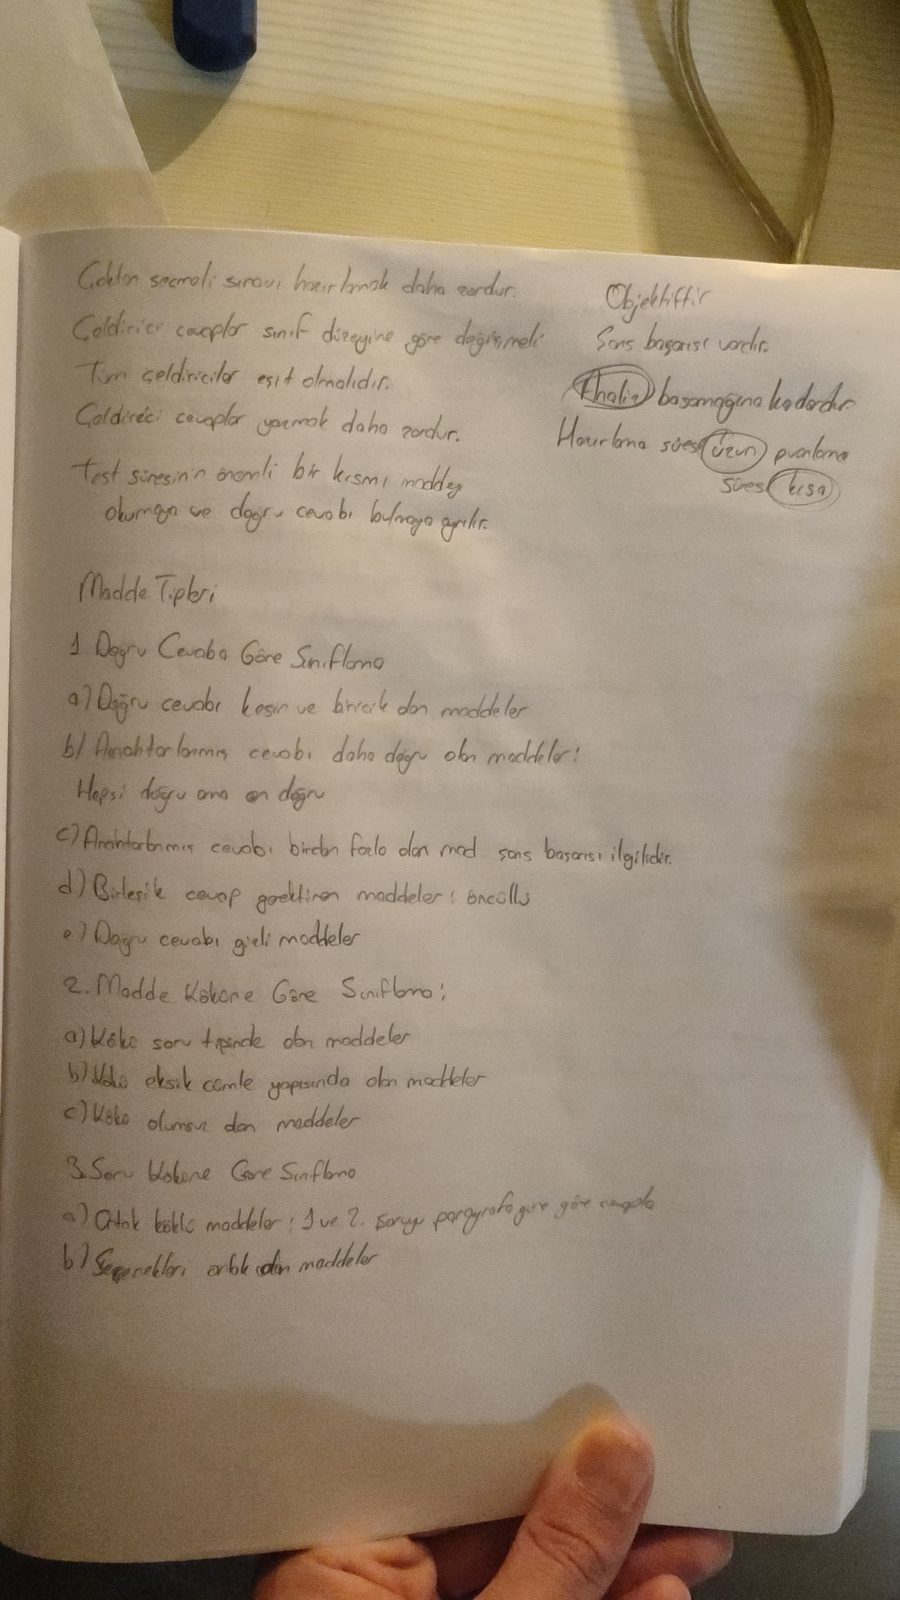 Çoktan seçmeli sınavı hazırlamak daha zordur.
Çeldirici cevaplar sınıf düzeyine göre değişmeli
Tüm çeldiriciler eşit olmalıdır.
Çeldirici cevaplar yazmak daha zordur.
Test süresinin önemli bir kısmı maddey
okumaya ve doğru cevabı bulmaya ayrılır.
Objektiftir
Şans başarısı vardır.
basamağına kadardır.
Hazırlama süresi uzun puanlama
süresi kısa
Madde Tipleri
1 Doğru Cevaba Göre Sınıflama
a) Doğru cevabı kesin ve biricik olan maddeler
b) Anahtarlanmış cevabı daha doğru olan maddeler:
Hepsi doğru ama en doğru
c) Anahtarlanmış cevabı birden fazla olan mad şans başarısı ilgilidir.
d) Birleşik cevap gerektiren maddeler: öncüllü
e) Doğru cevabı gizli maddeler
2. Madde Köküne Göre Sınıflama:
a) Kökü soru tipinde olan maddeler
b) Kökü eksik cümle yapısında olan maddeler
c) Kökü olumsuz olan maddeler
3. Soru Köküne Göre Sınıflama
a) Ortak köklü maddeler: 1 ve 2. soruyu paragrafa göre cevapla
b) Seçenekleri ortak olan maddeler